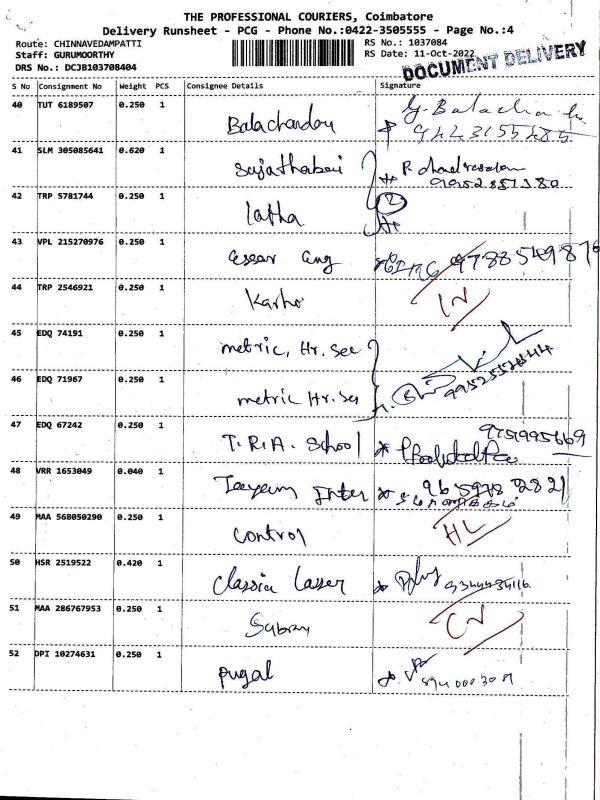 THE PROFESSIONAL COURIERS, Coimbatore
Delivery Runsheet - PCG - Phone No.:0422-3505555 - Page No.:4
Route: CHINNAVEDAMPATTI
Staff: GURUMOORTHY
DRS No.: DCJB103708404
RS No.: 1037084
RS Date: 11-Oct-2022
DOCUMENT DELIVERY
S No Consignment No Weight PCS Consignee Details Signature
40 TUT 6189507 0.250 1
Balachandar
41 SLM 305085641 0.620 1
Sujathabai
9952857380
42 TRP 5781744 0.250 1
latha
2
43 VPL 215270976 0.250 1
essar eng
9788549876
44 TRP 2546921 0.250 1
45 EDQ 74191 0.250 1
metric, Hr. Sec
46 EDQ 71967 0.250 1
metric Hr. Sec
47 EDQ 67242 0.250 1
T. R. A. School
9751995669
48 VRR 1653049 0.040 1
Inter
965978 2821
49 MAA 568050290 0.250 1
control
HL
50 HSR 2519522 0.420 1
classic Lasser
51 MAA 286767953 0.250 1
52 DPI 10274631 0.250 1
pugal